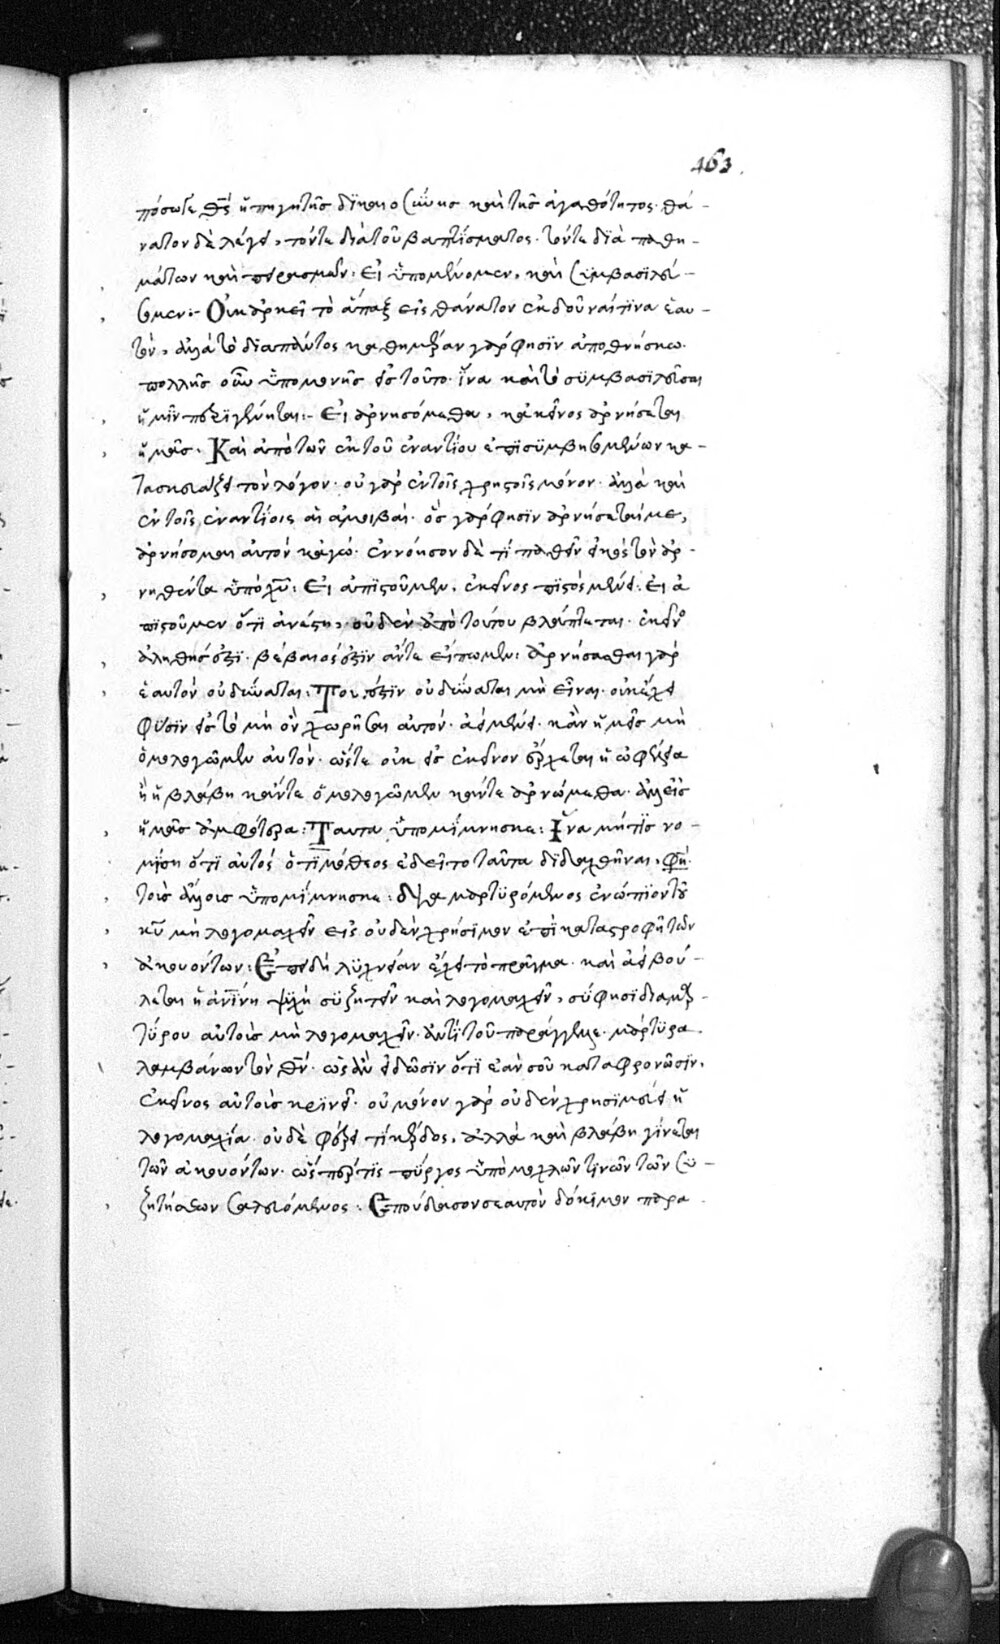 463
πόσω γε θς ἡ πηγὴ τῆς δικαιοσύνης καὶ τῆς ἀγαθότητος. θά-
νατον δὲ λέγει, τόν τε διὰ τοῦ βαπτίσματος. τόν τε διὰ παθη-
μάτων καὶ πειρασμῶν: Εἰ ὑπομένομεν, καὶ συμβασιλεύ-
σομεν:- Οὐκ ἀρκεῖ τὸ ἅπαξ εἰς θάνατον ἐκδοῦναί τινα ἑαυ-
τόν, ἀλλὰ τὸ διαπαντὸς καθημέραν γάρ φησιν ἀποθνήσκω.
πολλῆς οὖν ὑπομονῆς εἰς τοῦτο. ἵνα καὶ τὸ συμβασιλεῦσαι
ἡμῖν περιγένηται:- Εἰ ἀρνησόμεθα, κἀκεῖνος ἀρνήσεται
ἡμᾶς. Καὶ ἀπὸ τῶν ἐκ τοῦ ἐναντίου ἐπισυμβησομένων κα-
τασκευάζει τὸν λόγον. οὐ γὰρ ἐν τοῖς χρηστοῖς μόνον. ἀλλὰ καὶ
ἐν τοῖς ἐναντίοις αἱ ἀμοιβαί. ὃς γάρ φησιν ἀρνήσεταί με,
ἀρνήσομαι αὐτὸν κἀγώ. ἐννόησον δὲ τί παθεῖν εἰκὸς τὸν ἀρ-
νηθέντα ὑπὸ χυ: Εἰ ἀπιστοῦμεν, ἐκεῖνος πιστὸς μένει. Εἰ ἀ-
πιστοῦμεν ὅτι ἀνέστη, οὐδὲν ἀπὸ τούτου βλάπτεται. ἐκεῖνος
ἀληθής ἐστι. βέβαιός ἐστιν ἄν τε εἴπωμεν: Ἀρνήσασθαι γὰρ
ἑαυτὸν οὐ δύναται: Τουτέστιν οὐ δύναται μὴ εἶναι. οὐκ ἔχει
φύσιν εἰς τὸ μὴ ὂν χωρῆσαι αὐτόν. ἀεὶ μένει. κἂν ἡμεῖς μὴ
ὁμολογῶμεν αὐτόν. ὥστε οὐκ εἰς ἐκεῖνον ἔρχεται ἡ ὠφέλεια
ἢ ἡ βλάβη κἄν τε ὁμολογῶμεν κἄν τε ἀρνώμεθα. ἀλλ' εἰς
ἡμᾶς ἀμφότερα: Ταῦτα ὑπομίμνησκε: Ἵνα μή τις νο-
μίσῃ ὅτι αὐτὸς ὁ τιμόθεος ἐδεῖτο ταῦτα διδαχθῆναι, φησὶ
τοῖς ἄλλοις ὑπομίμνησκε: διαμαρτυρόμενος ἐνώπιον τοῦ
κυ μὴ λογομαχεῖν εἰς οὐδὲν χρήσιμον ἐπὶ καταστροφῇ τῶν
ἀκουόντων: Ἐπειδὴ λίχνείαν ἔχει τὸ πρᾶγμα. καὶ ἀεὶ βού-
λεται ἡ ἀνίνη ψυχὴ συζητεῖν καὶ λογομαχεῖν, σύ φησι διαμαρ-
τύρου αὐτοῖς μὴ λογομαχεῖν. ἀντὶ τοῦ παράγγελλε. μάρτυρα
λαμβάνων τὸν θν. ὡς ἂν εἰδῶσιν ὅτι ἐὰν σοῦ καταφρονῶσιν,
ἐκεῖνος αὐτοὺς κρινεῖ. οὐ μόνον γὰρ οὐδὲν χρησιμεύει ἡ
λογομαχία. οὐδὲ φέρει τι κέρδος, ἀλλὰ καὶ βλάβη γίνεται
τῶν ἀκουόντων. ὥσπερ τις πύργος ὑπὸ πολλῶν τινῶν τῶν συ-
ζητήσεων σαλευόμενος: Σπούδασον σεαυτὸν δόκιμον παρα-